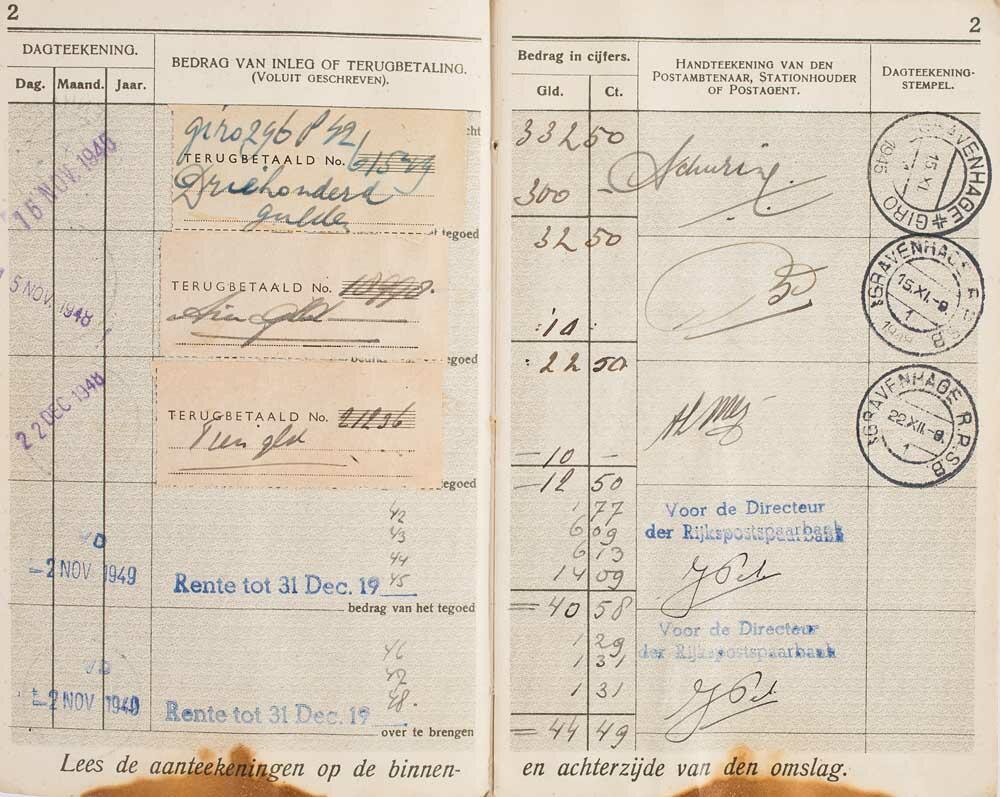 2
DAGTEEKENING.
Dag. Maand. Jaar.
BEDRAG VAN INLEG OF TERUGBETALING.
(VOLUIT GESCHREVEN).
16 NOV. 1948
giro 296 P 42
TERUGBETAALD No.
Driehonderd
gulden
tegoed
5 NOV. 1948
TERUGBETAALD No.
egoed
22 DEC 1948
TERUGBETAALD No. 21236
Tien gld
egoed
42
43
44
-2 NOV 1949
Rente tot 31 Dec. 19 45
bedrag van het tegoed
46
47
48.
-2 NOV 1949
Rente tot 31 Dec. 19
over te brengen
Lees de aanteekeningen op de binnen-
2
Bedrag in cijfers.
Gld. Ct.
HANDTEEKENING VAN DEN
POSTAMBTENAAR, STATIONHOUDER
OF POSTAGENT.
DAGTEEKENING-
STEMPEL.
332 50
300 -
32 50
10
22 50
10 -
12 50
1 77
6 09
6 13
14 09
40 58
1 29
1 31
1 31
44 49
Voor de Directeur
der Rijkspostspaarbank
Voor de Directeur
der Rijkspostspaarbank
'sGRAVENHAGE GIRO
15 XI
'sGRAVENHAGE R.P.S.B.
15.XI.-9.
1
'sGRAVENHAGE R.P.S.B.
22.XII.-9.
1
en achterzijde van den omslag.